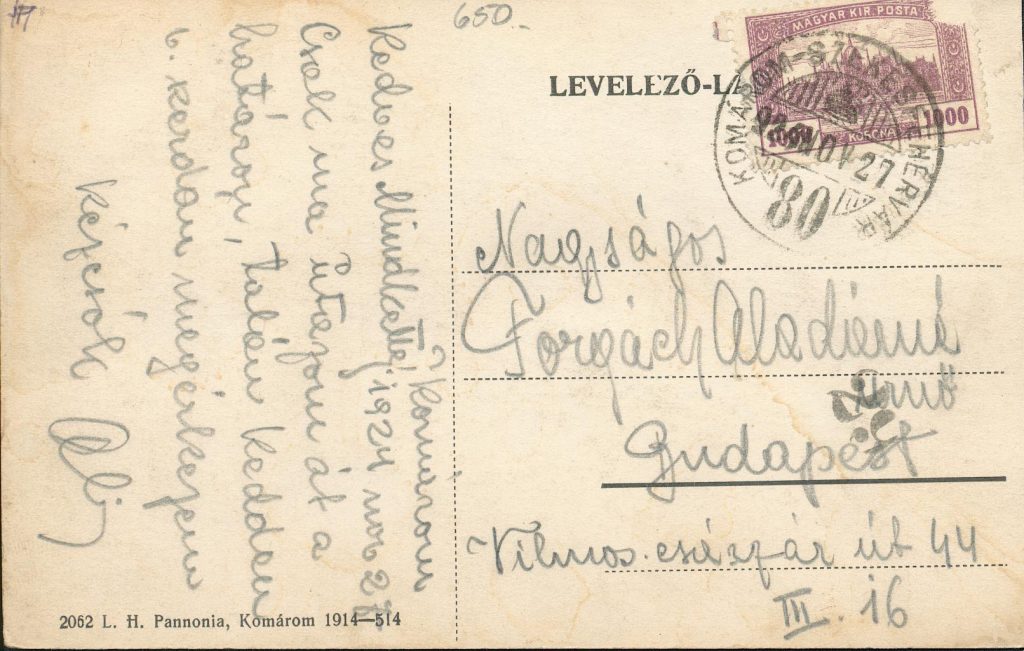 650.-
LEVELEZŐ-LA
MAGYAR KIR. POSTA
1000 KORONA 1000
KOMÁROM-SZÉKESFEHÉRVÁR
924 NOV 27
80
Komárom
1924 nov 27
Kedves Mindkettő!
Csak ma útazom át a
határon, talán kedden
v. szerdán megérkezem
Kézcsók
Nagyságos
Forgách Aladárné
úrnő
Budapest
Vilmos császár út 44
III. 16
2062 L. H. Pannonia, Komárom 1914—514